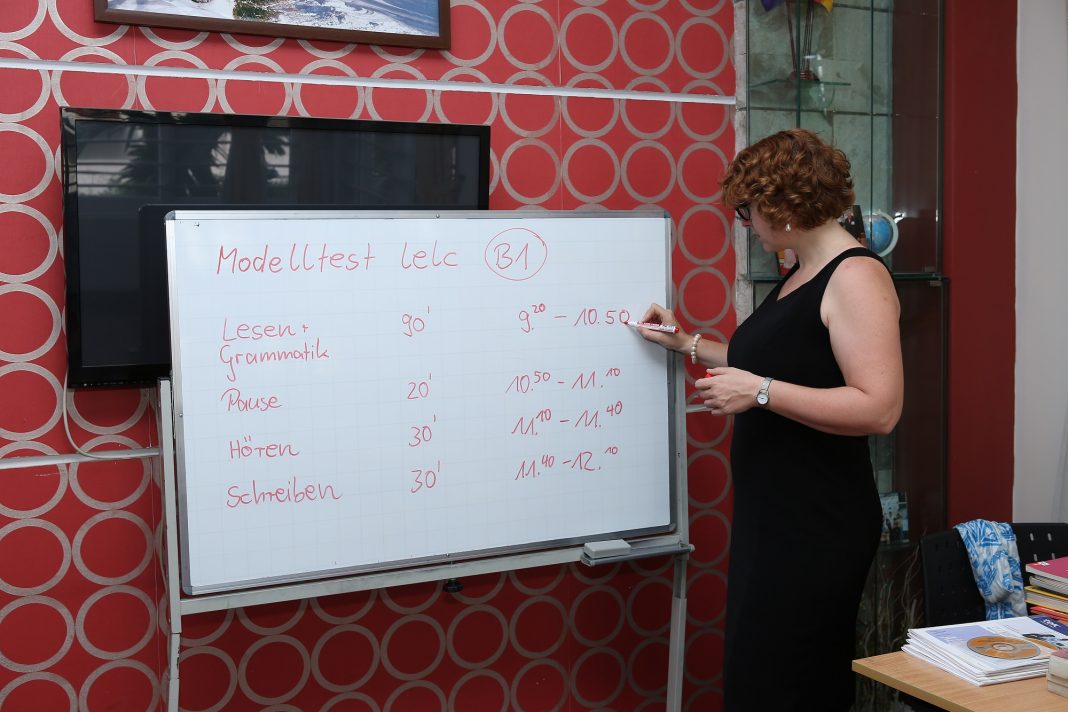 Modelltest telc B1
Lesen + 90' 9.20 – 10.50
Grammatik
Pause 20' 10.50 – 11.10
Hören 30' 11.10 – 11.40
Schreiben 30' 11.40 – 12.10